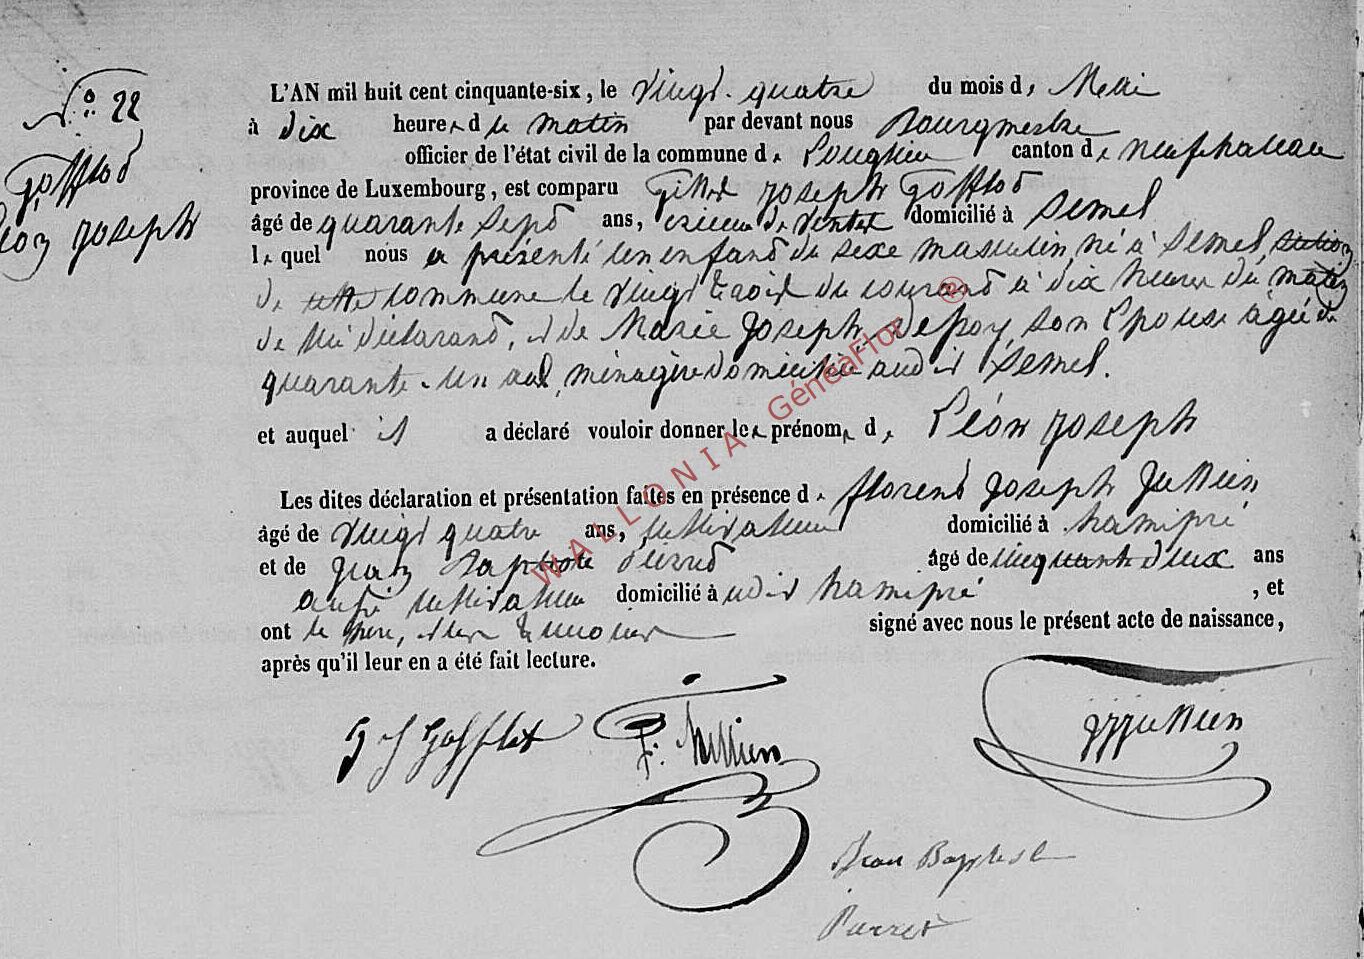 N.° 22
Gofflot
Léon Joseph
L'AN mil huit cent cinquante-six, le vingt-quatre du mois de Mai
à dix heures du matin par devant nous Bourgmestre
officier de l'état civil de la commune de Longlier canton de neufchateau
province de Luxembourg, est comparu Joseph Gofflot
âgé de quarante sept ans, domicilié à Semel
lequel nous a présenté un enfant du sexe masculin né à Semel section
de cette commune le vingt trois du courant à dix heures du matin
de lui déclarant, et de Marie Joseph Depoy, son épouse âgée de
quarante-un ans, ménagère domiciliée audit Semel.
et auquel il a déclaré vouloir donner les prénoms de Léon Joseph
Les dites déclaration et présentation faites en présence de florent Joseph Jullien
âgé de vingt quatre ans, cultivateur domicilié à hamipré
et de Jean Baptiste Pierret âgé de cinquante deux ans
aussi cultivateur domicilié audit hamipré, et
ont le père, et les témoins signé avec nous le présent acte de naissance,
après qu'il leur en a été fait lecture.
G J Gofflot
F. Jullien
Jullien
Jean Baptist
Pierret
WALLONIA GénéaFlor ®